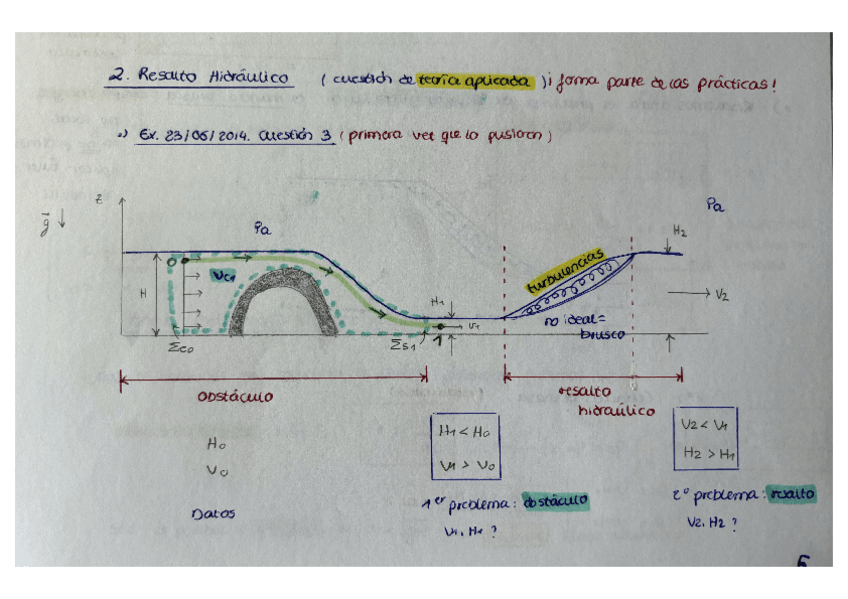 2. Resalto Hidráulico (cuestión de teoría aplicada) ¡ forma parte de las prácticas!
•) Ex. 23/06/2014. Cuestión 3 (primera vez que lo pusieron)
g
z
Pa
Pa
H2
0
Vc1
turbulencias
H
H1
V1
V2
no ideal =
brusco
Σc0
Σs1
1
obstáculo
resalto
hidraúlico
H0
V0
Datos
H1 < H0
V1 > V0
V2 < V1
H2 > H1
1er problema: obstáculo
V1, H1 ?
2º problema: resalto
V2, H2 ?